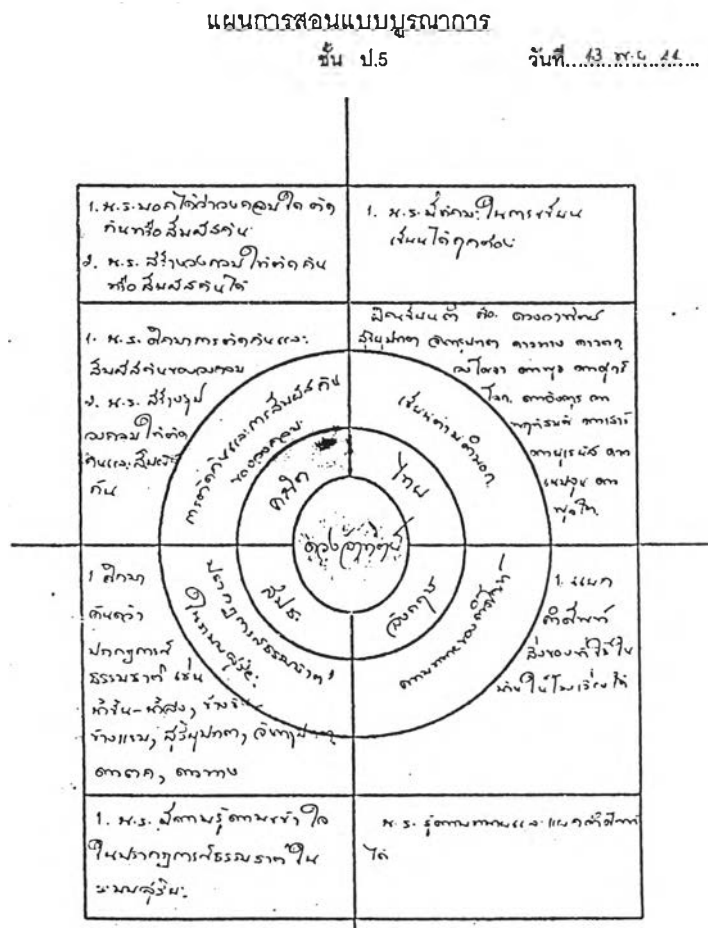 แผนการสอนแบบบูรณาการ
ชั้น ป.5
วันที่ 13 พ.ย. 44
1. น.ร. บอกได้ว่าวงกลมใด ตัด
กันหรือสัมผัสกัน
2. น.ร. สร้างวงกลมให้ตัดกัน
หรือสัมผัสกันได้
1. น.ร. มีทักษะในการเขียน
เขียนได้ถูกต้อง
1. น.ร. ศึกษาการตัดกันและ
สัมผัสกันของวงกลม
2. น.ร. สร้างรูป
วงกลมให้ตัด
กันและสัมผัส
กัน
ฝึกเขียนคำ คือ ดวงอาทิตย์
สุริยุปราคา จันทรุปราคา ดาวหาง ดาวตก
ดาวพุธ ดาวศุกร์
โลก ดาวอังคาร ดาว
พฤหัสบดี ดาวเสาร์
ดาวยูเรนัส ดาว
เนปจูน ดาว
พลูโต
การตัดกันและการสัมผัสกัน
ของวงกลม
เขียนตามคำบอก
คณิต
ไทย
ดวงอาทิตย์
สปช.
อังกฤษ
ปรากฏการณ์ธรรมชาติ
ในระบบสุริยะ
ความหมายของคำศัพท์
1 ศึกษา
ค้นคว้า
ปรากฏการณ์
ธรรมชาติ เช่น
น้ำขึ้น-น้ำลง, ข้างขึ้น
ข้างแรม, สุริยุปราคา, จันทรุปราคา
ดาวตก, ดาวหาง
1. แยก
คำศัพท์
สิ่งของที่ใช้ใน
บ้านในโรงเรียนได้
1. น.ร. มีความรู้ความเข้าใจ
ในปรากฏการณ์ธรรมชาติใน
ระบบสุริยะ
น.ร. รู้ความหมายและแยกคำศัพท์
ได้